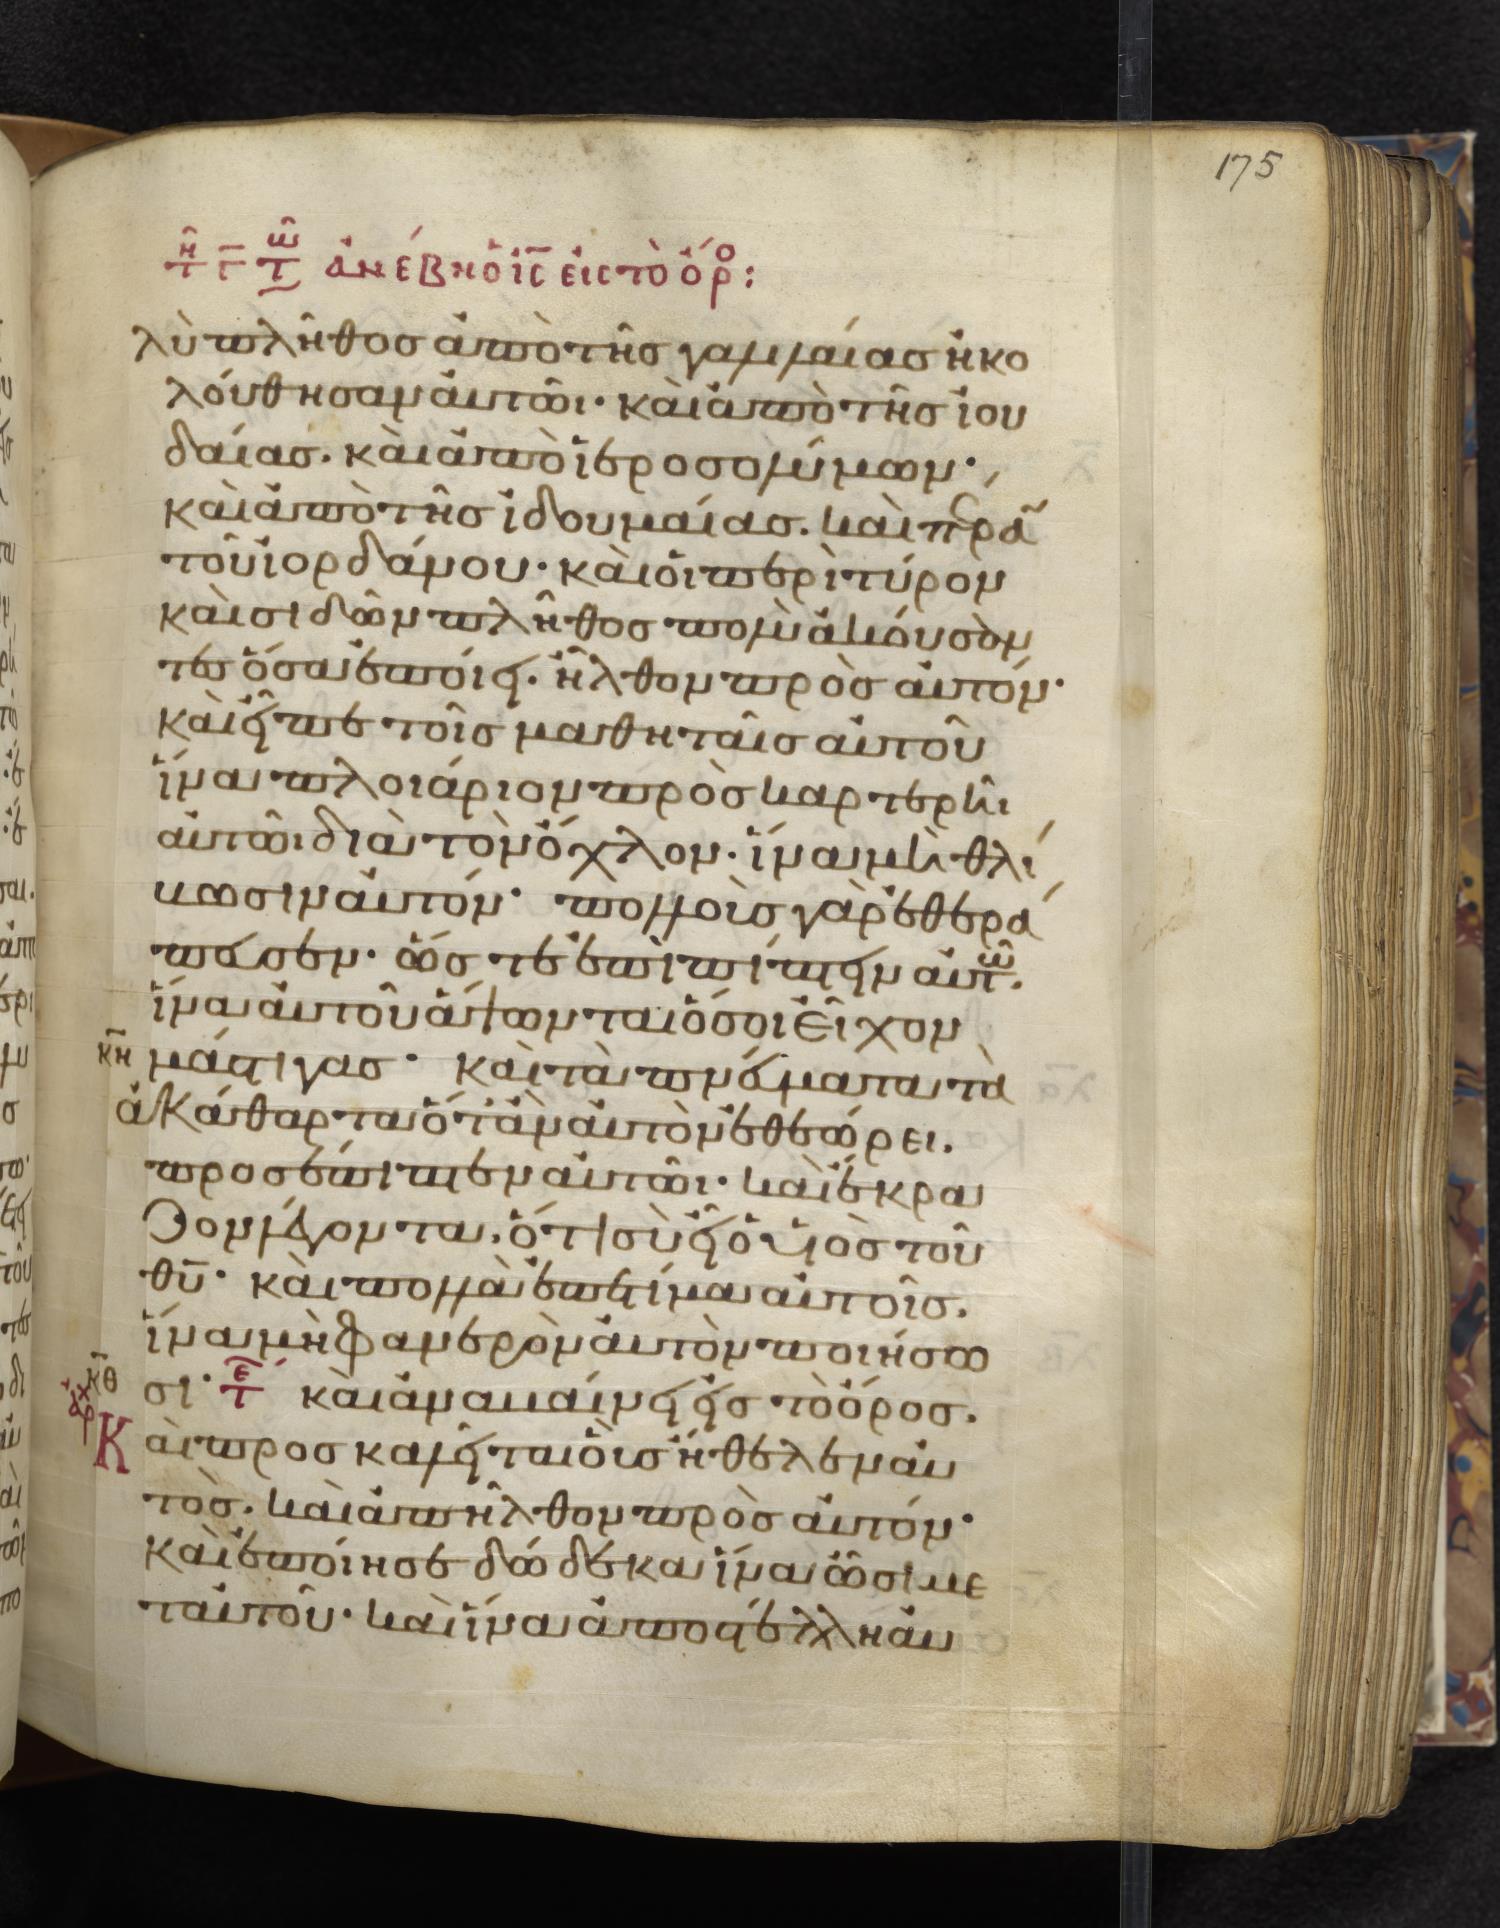 175
τῆ γ τῷ ἀνέβη ὁ ις εἰς τὸ ὄρο:
λὺ πλῆθος ἀπὸ τῆς γαλλιλαίας ἠκο
λούθησαν αὐτῶι· καὶ ἀπὸ τῆς ἰου
δαίας. καὶ ἀπὸ ἱεροσολύμων·
καὶ ἀπὸ τῆς ἰδουμαίας. καὶ πέρα
τοῦ ἰορδάνου· καὶ οἱ περὶ τύρον
καὶ σιδῶν πλῆθος πολὺ ἀκούσον
τες ὅσα ἐποίει. ἦλθον πρὸς αὐτόν·
καὶ εἶπε τοῖς μαθηταῖς αὐτοῦ
ἵνα πλοιάριον προσκαρτερῆι
αὐτῶι διὰ τὸν ὄχλον. ἵνα μὴ θλί
βωσιν αὐτόν· πολλοὺς γὰρ ἐθερά
πευσεν· ὥστε ἐπιπίπτειν αὐτῶ.
ἵνα αὐτοῦ ἅψωνται ὅσοι εἶχον
κη μάστιγας· καὶ τὰ πνεύματα τὰ
ἀκάθαρτα ὅταν αὐτὸν ἐθεώρει.
προσέπιπτεν αὐτῶι· καὶ ἔκρα
ζον λέγοντα. ὅτι σὺ εἶ ὁ υἱὸς τοῦ
θυ· καὶ πολλὰ ἐπετίμα αὐτοῖς.
ἵνα μὴ φανερὸν αὐτὸν ποιήσω
κθ σι· τε καὶ ἀναβαίνει εἰς τὸ ὄρος.
ἀρχ Καὶ προσκαλεῖται οὓς ἤθελεν αὐ
τὸς. καὶ ἀπῆλθον πρὸς αὐτόν·
καὶ ἐποίησε δώδεκα ἵνα ὦσι με
τ αὐτοῦ· καὶ ἵνα ἀποστέλλη αὐ